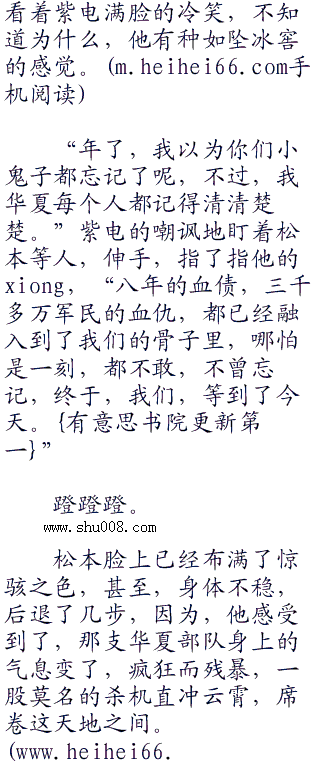 看着紫电满脸的冷笑，不知
道为什么，他有种如坠冰窖
的感觉。(m.heihei66.com手
机阅读)
“年了，我以为你们小
鬼子都忘记了呢，不过，我
华夏每个人都记得清清楚
楚。”紫电的嘲讽地盯着松
本等人，伸手，指了指他的
xiong，“八年的血债，三千
多万军民的血仇，都已经融
入到了我们的骨子里，哪怕
是一刻，都不敢，不曾忘
记，终于，我们，等到了今
天。{有意思书院更新第
一}”
蹬蹬蹬。
www.shu008.com
松本脸上已经布满了惊
骇之色，甚至，身体不稳，
后退了几步，因为，他感受
到了，那支华夏部队身上的
气息变了，疯狂而残暴，一
股莫名的杀机直冲云霄，席
卷这天地之间。
(www.heihei66.